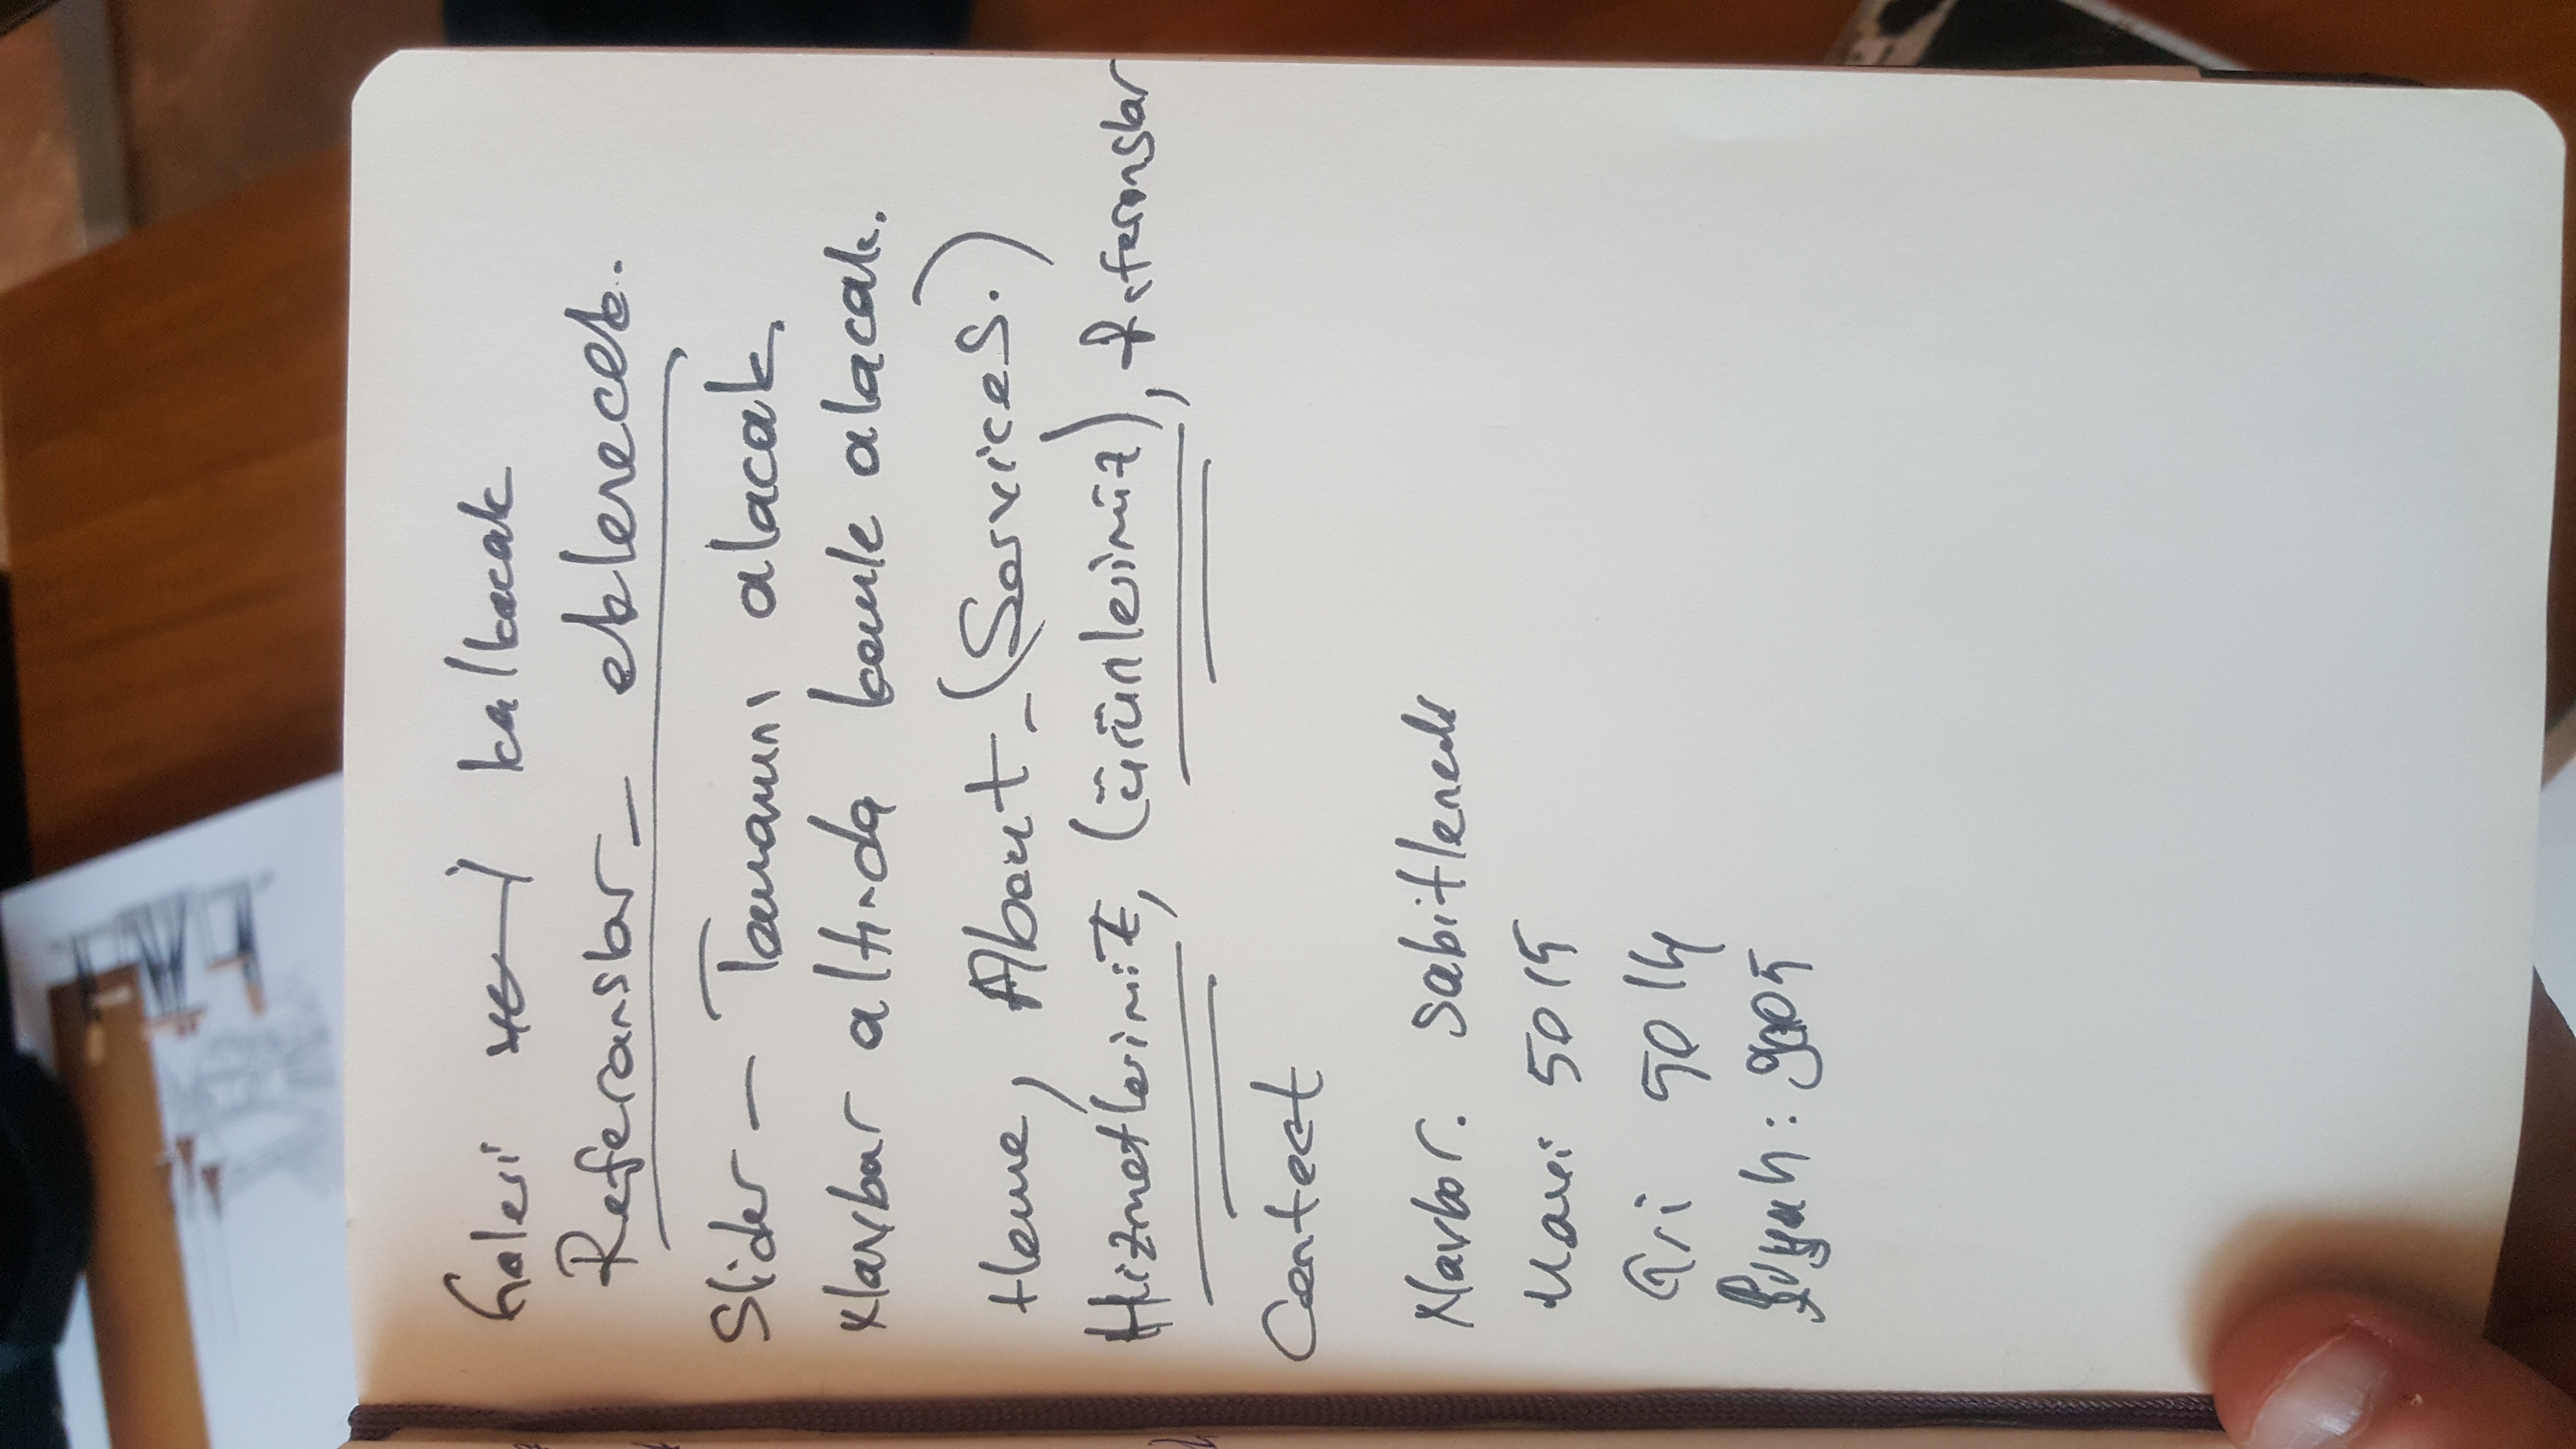 Galeri kalkacak
Referanslar_ eklenecek.
Slider - Tamamını alacak
Navbar altında konule alacak.
Home, About_(Services.)
Hizmetlerimiz, (ürünlerimiz), Referanslar
Contect
Navbar. Sabitlenecek
Mavi 5015
Gri
Siyah: 9005